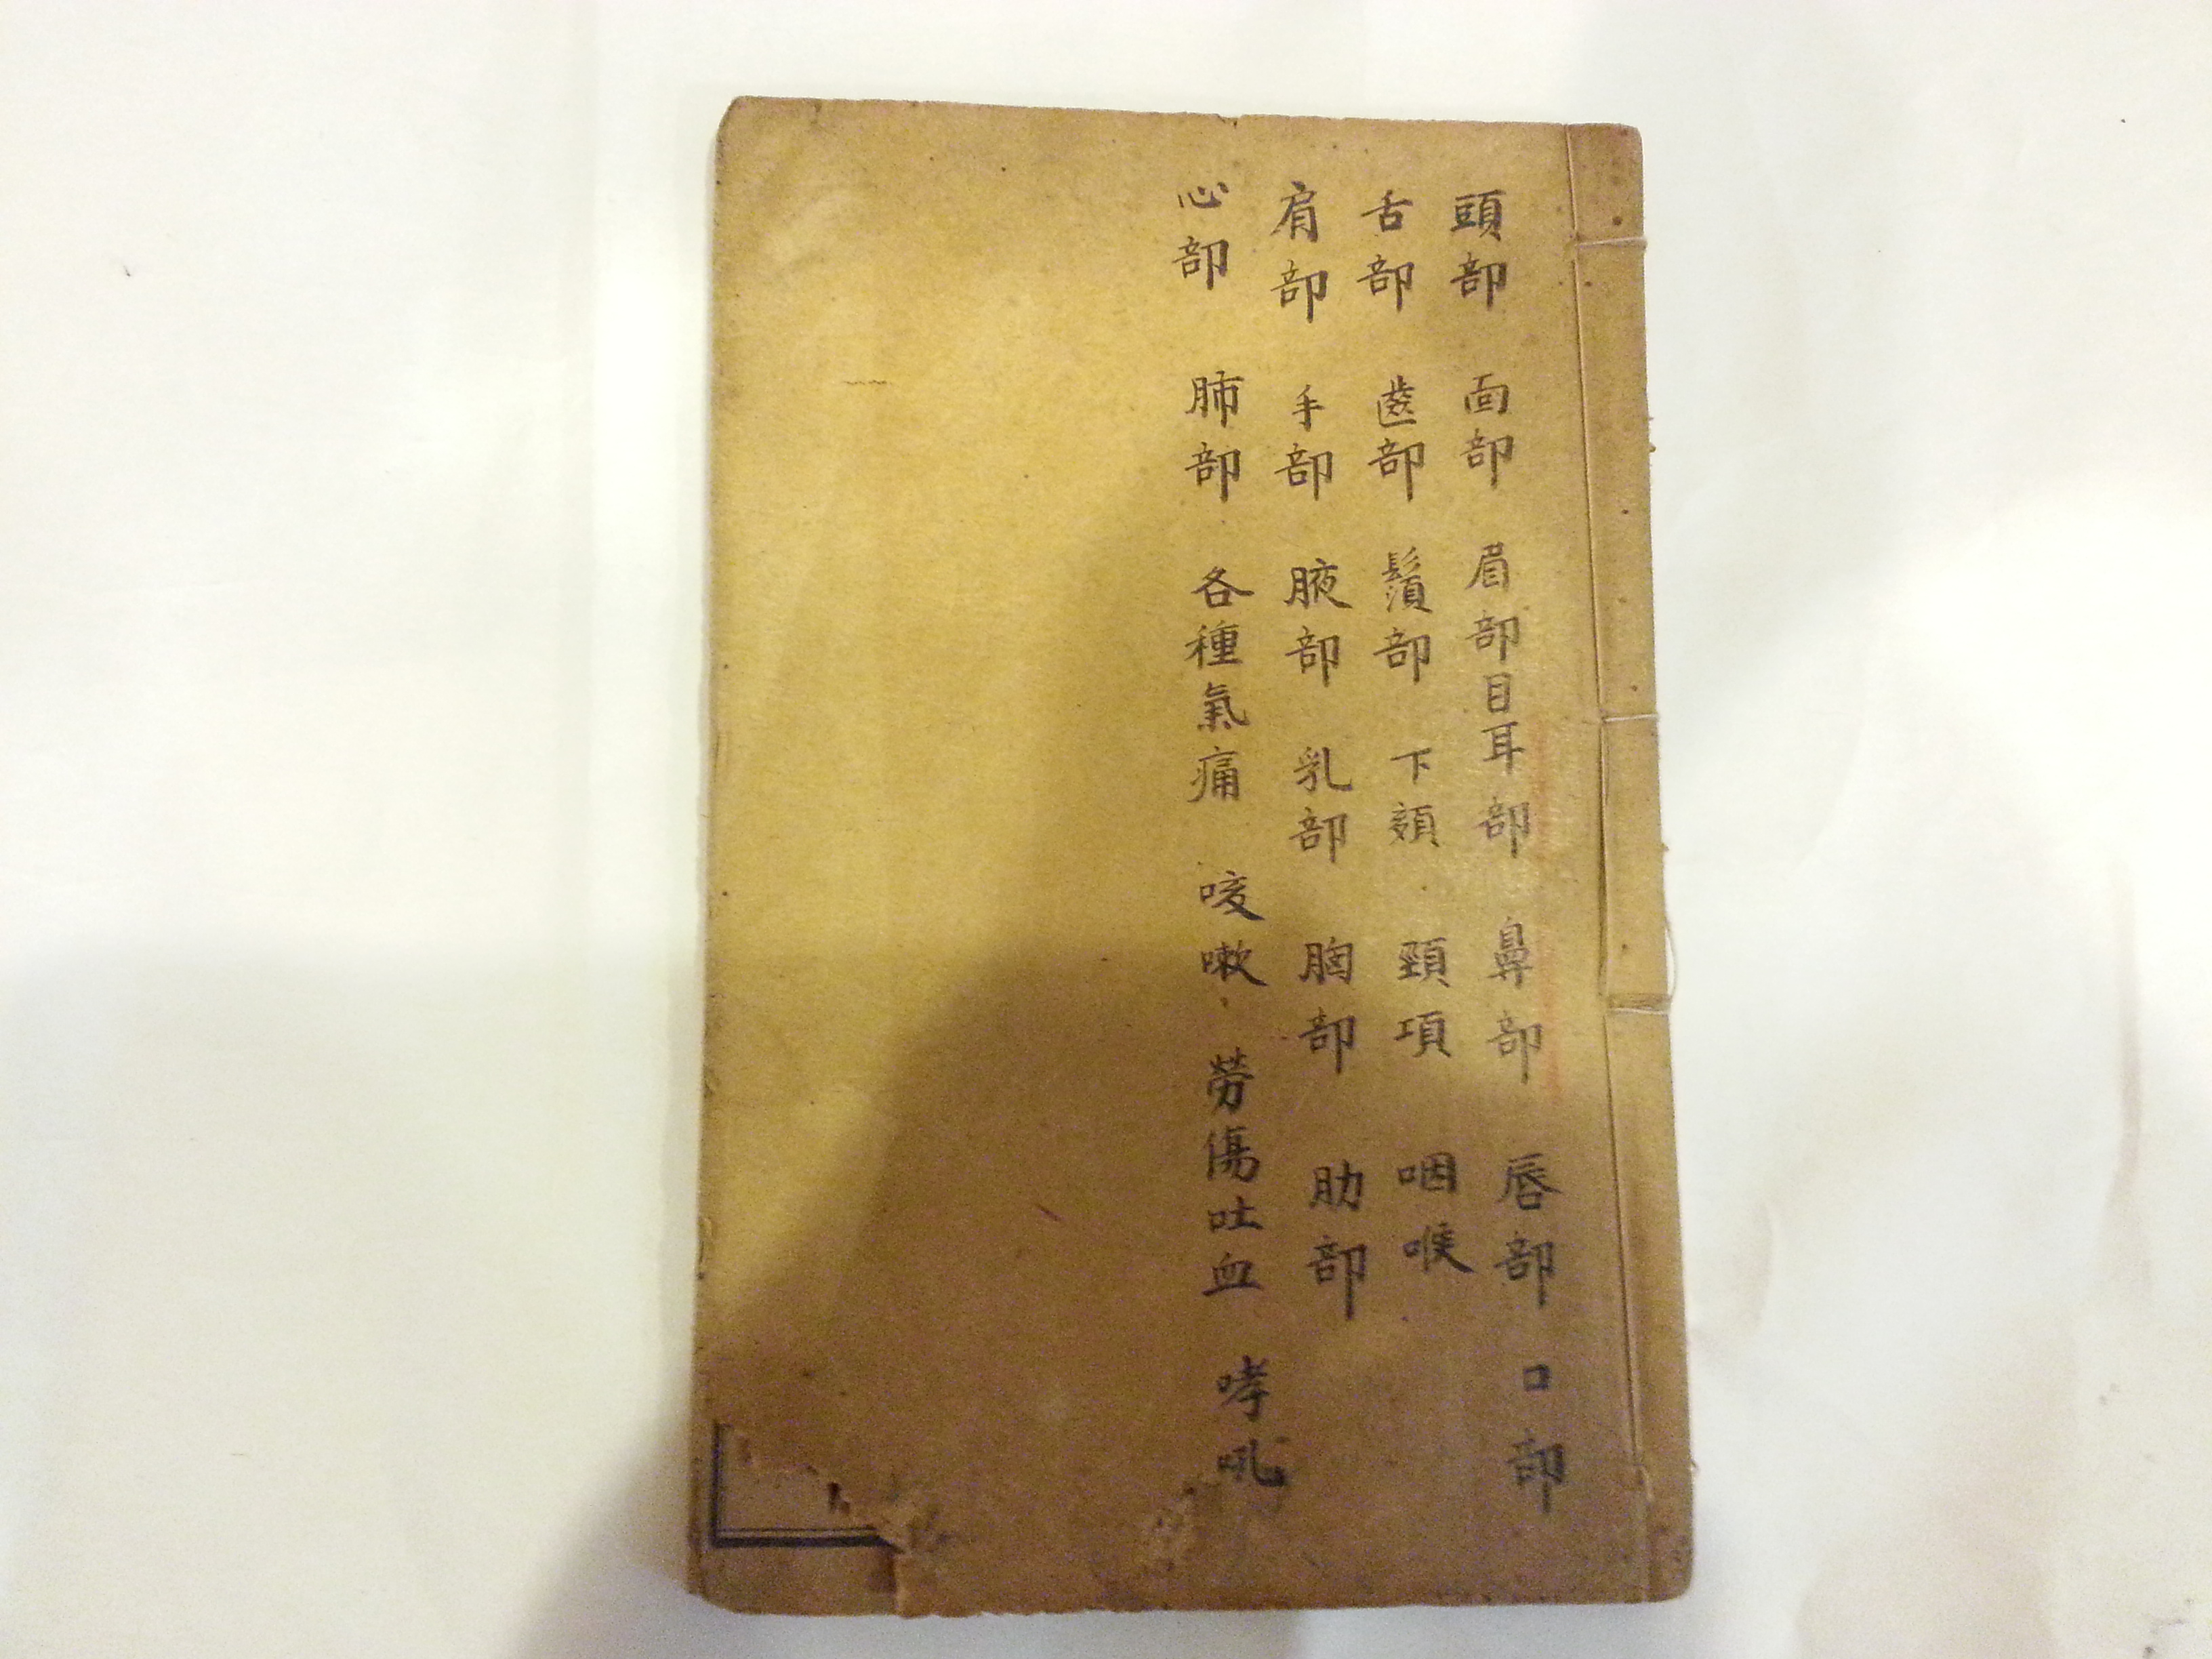 頭部 面部 眉部 目耳部 鼻部 唇部 口部
舌部 齒部 鬚部 下頦 頸項 咽喉
肩部 手部 腋部 乳部 胸部 肋部
心部 肺部 各種氣痛 咳嗽 勞傷吐血 哮吼